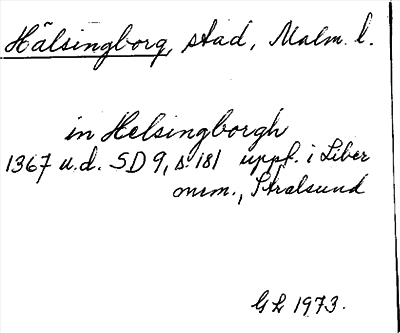 Hälsingborg, stad, Malm. l.
in Helsingborgh
1367 u.d. SD 9, s. 181 uppf. i Liber
mem., Stralsund
GL 1973.